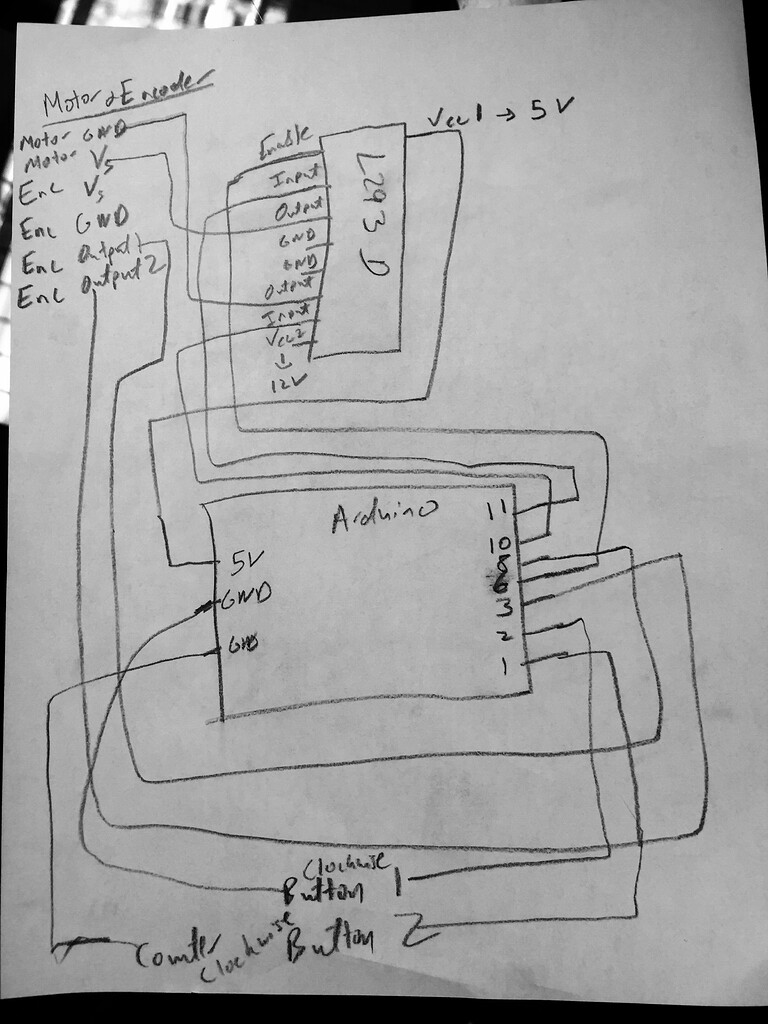 Motor & Encoder
Motor GND
Motor Vs
Enc Vs
Enc GND
Enc Output 1
Enc Output 2
Vcc1 → 5V
Enable
Input
Output
GND
GND
Output
Input
Vcc2
↓
12V
L293D
Arduino
5V
GND
GND
11
10
9
6
3
2
1
Clockwise
Button 1
Counter
Clockwise
Button 2